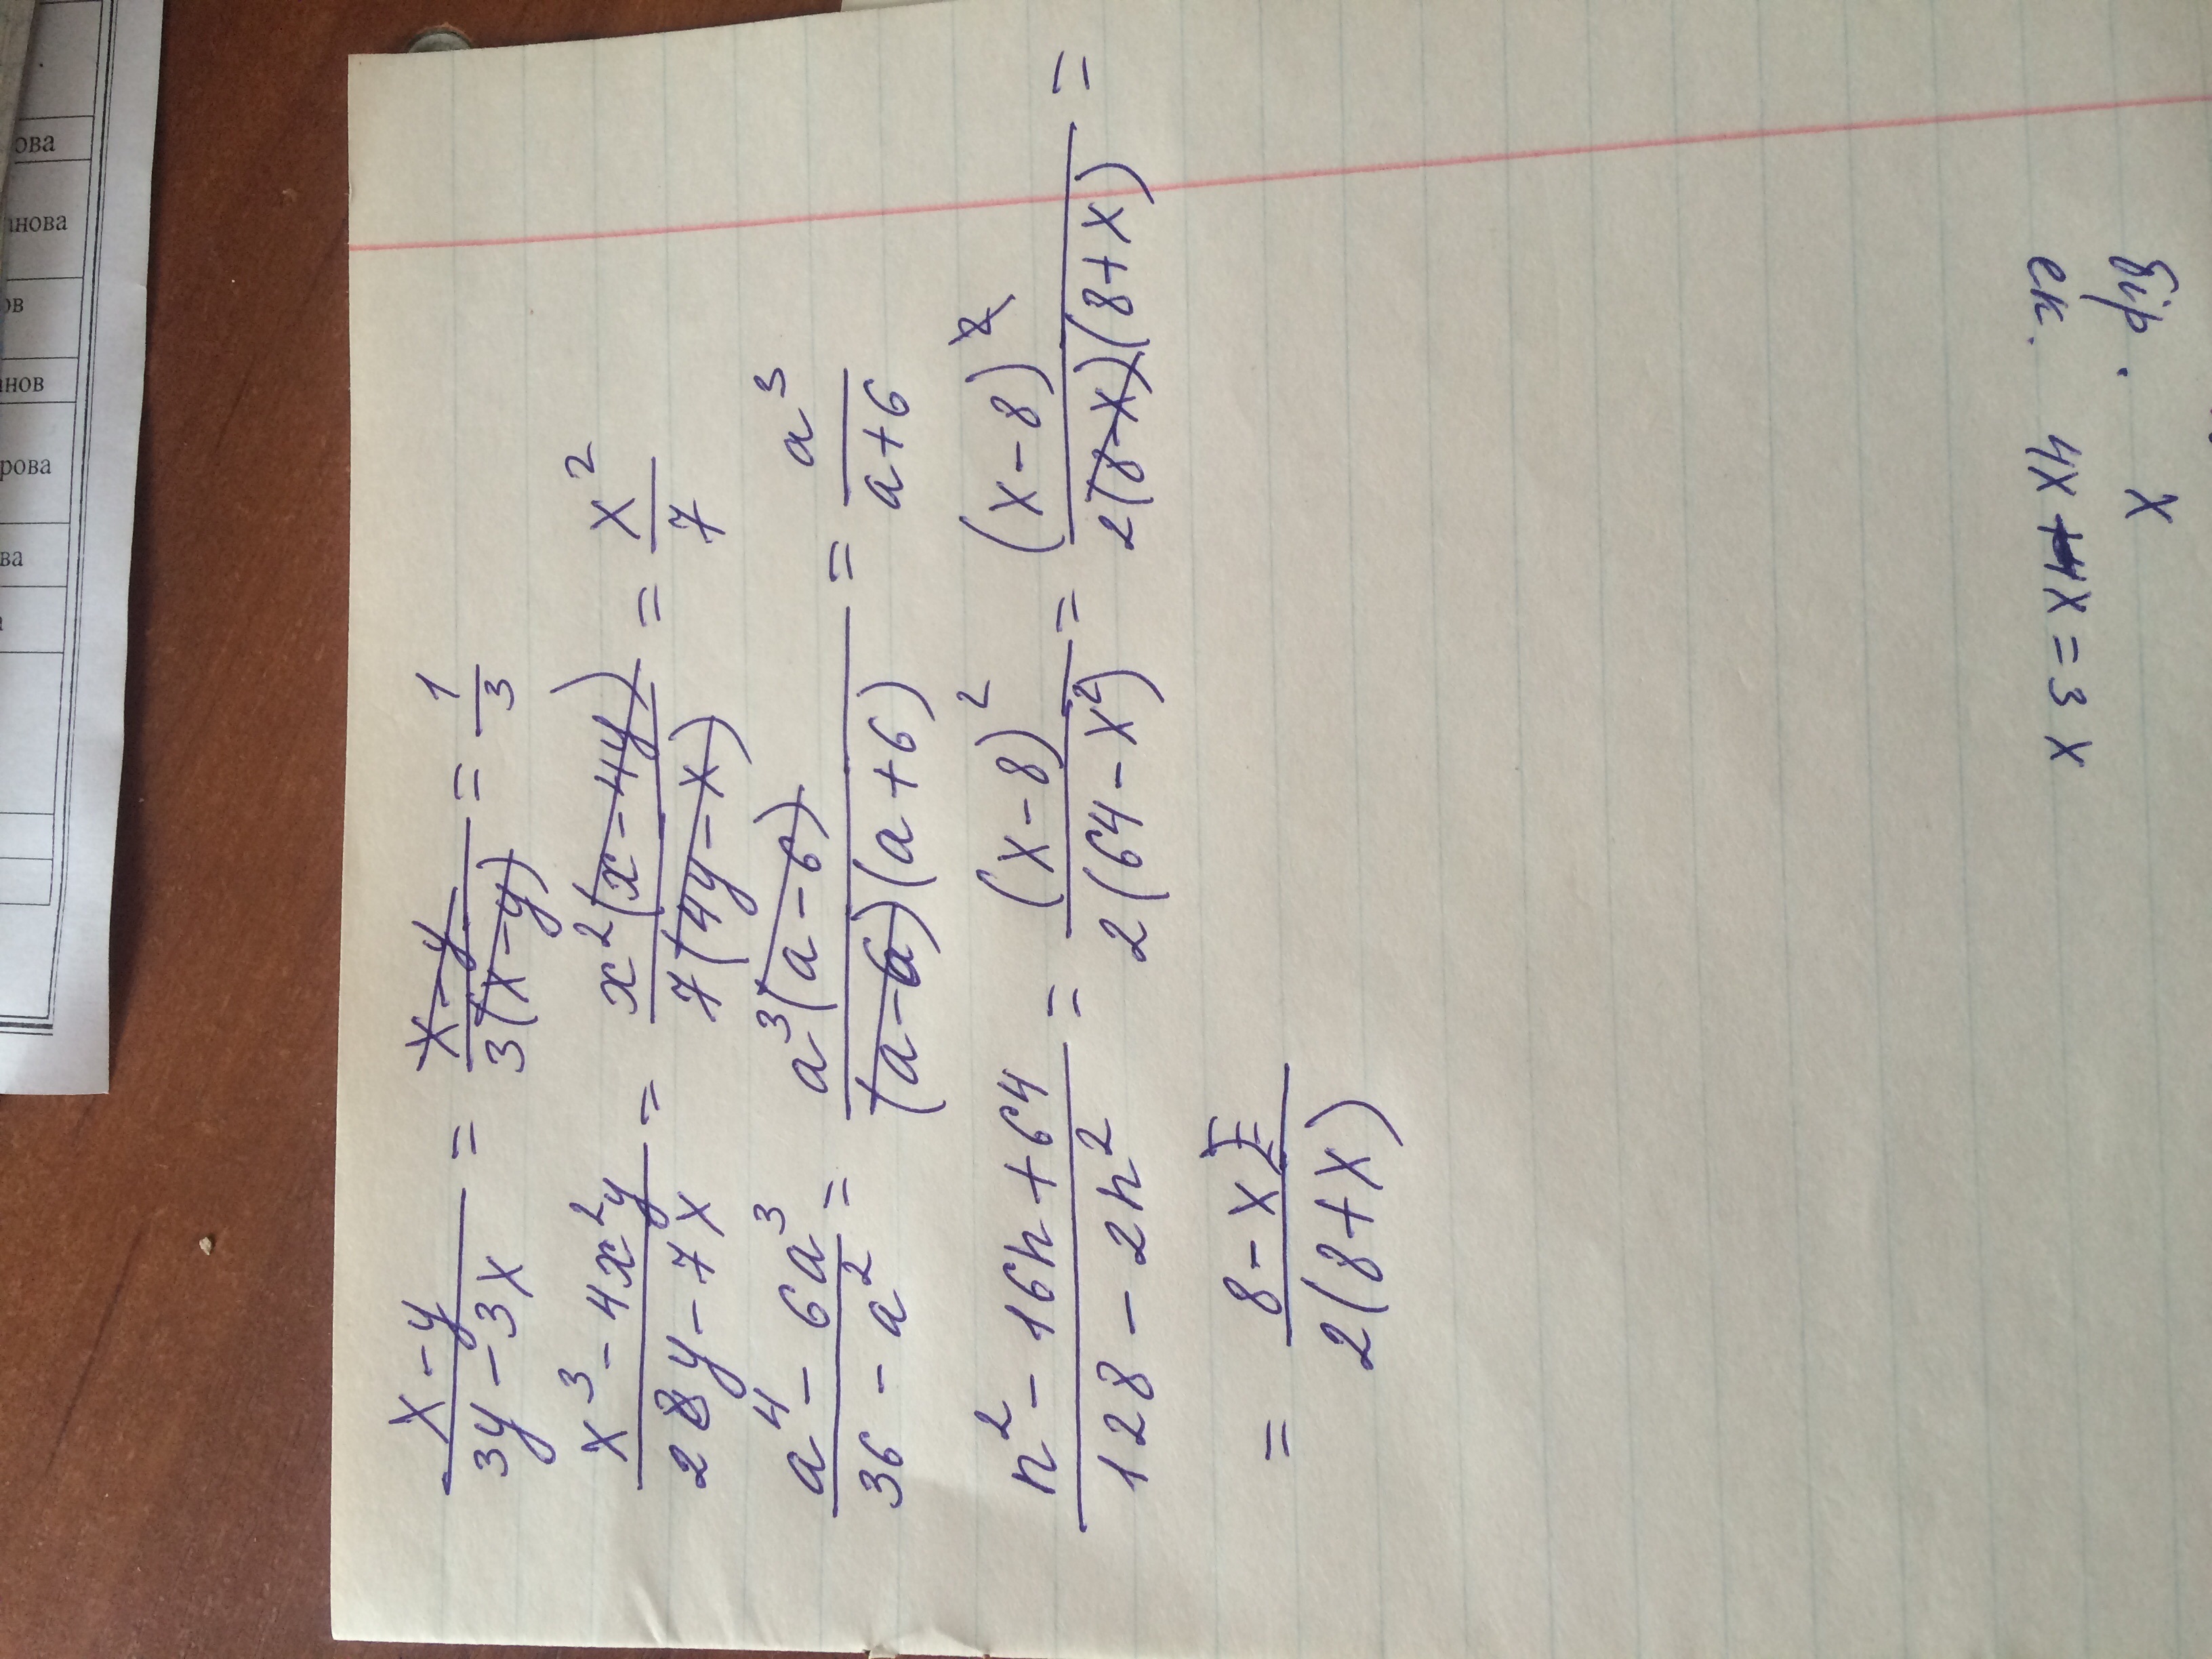 (x-y)/(3y-3x) = (x-y)/(3(x-y)) = 1/3
(x³-4x²y)/(28y-7x) = (x²(x-4y))/(7(4y-x)) = x²/7
(a⁴-6a³)/(36-a²) = (a³(a-6))/((a-6)(a+6)) = a³/(a+6)
(n²-16n+64)/(128-2n²) = (x-8)²/(2(64-x²)) = (x-8)²/(2(8-x)(8+x)) =
= (8-x)/(2(8+x))
x = 3x
x
ова
нова
ов
нов
рова
ва
а